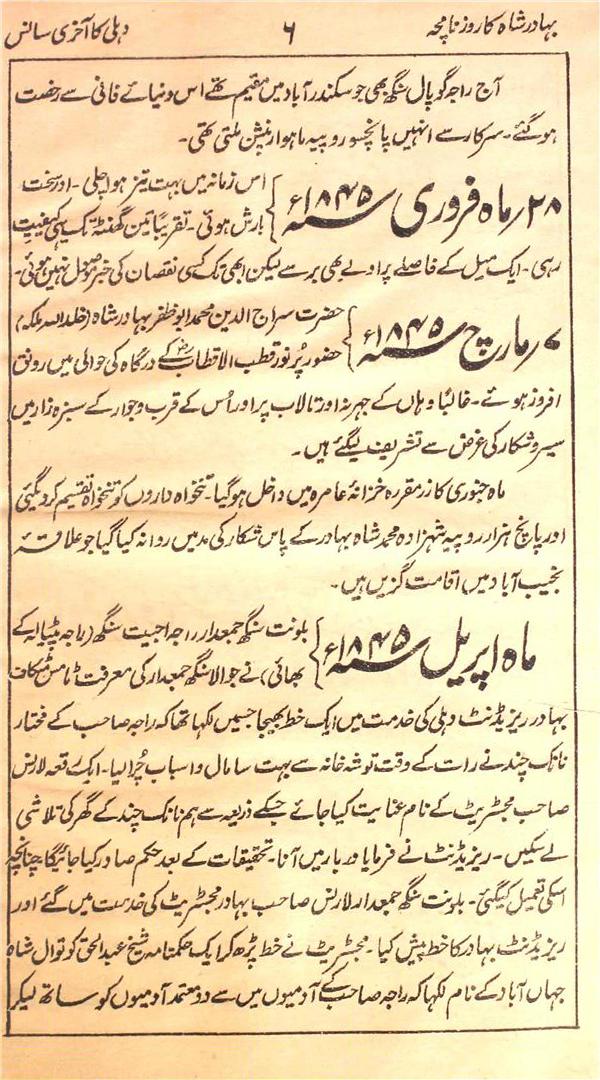 بہادر شاہ کا روزنامچہ ۶ دہلی کا آخری سانس
آج راجہ گوپال سنگھ بھی جو سکندر آباد میں مقیم تھے اس دنیائے فانی سے رخصت
ہوگئے۔ سرکار سے انہیں پانچسو روپیہ ماہوار پنشن ملتی تھی۔
۲۸؍ماہ فروری ۱۸۴۵ء
اس زمانہ میں بہت تیز ہوا چلی۔ اور سخت
بارش ہوئی۔ تقریباً تین گھنٹہ تک یہی کیفیت
رہی۔ ایک میل کے فاصلے پر اولے بھی برسے لیکن ابھی تک کسی نقصان کی خبر موصول نہیں ہوئی۔
۷؍مارچ ۱۸۴۵ء
حضرت سراج الدین محمد ابوظفر بہادر شاہ (خلد اللہ ملکہ)
حضور پُرنور قطب الاقطابؒ کے درگاہ کی حوالی میں رونق
افروز ہوئے۔ غالباً وہاں کے جھرنہ اور تالاب پر اور اُس کے قرب و جوار کے سبزہ زار میں
سیر و شکار کی غرض سے تشریف لیگئے ہیں۔
ماہ جنوری کا زر مقررہ خزانۂ عامرہ میں داخل ہوگیا۔ تنخواہ داروں کو تنخواہ تقسیم کردیگئی
اور پانچ ہزار روپیہ شہزادہ محمد شاہ بہادر کے پاس شکار کی مد میں روانہ کیا گیا جو علاقہ
نجیب آباد میں اقامت گزیں ہیں۔
ماہ اپریل ۱۸۴۵ء
بلونت سنگھ جمعدار راجہ اجیت سنگھ (راجہ پٹیالہ کے
بھائی) نے جوالا سنگھ جمعدار کی معرفت ٹامس مٹکاف
بہادر ریزیڈنٹ دہلی کی خدمت میں ایک خط بھیجا جسمیں لکھا تھا کہ راجہ صاحب کے مختار
نانک چند نے رات کے وقت توشہ خانہ سے بہت سا مال و اسباب چُرا لیا۔ ایک رقعہ لارنس
صاحب مجسٹریٹ کے نام عنایت کیا جائے جسکے ذریعہ سے ہم نانک چند کے گھر کی تلاشی
لے سکیں۔ ریزیڈنٹ نے فرمایا دربار میں آنا۔ تحقیقات کے بعد حکم صادر کیا جائیگا چنانچہ
اسکی تعمیل کیگئی۔ بلونت سنگھ جمعدار لارنس صاحب بہادر مجسٹریٹ کی خدمت میں گئے اور
ریزیڈنٹ بہادر کا خط پیش کیا۔ مجسٹریٹ نے خط پڑھ کر ایک حکمنامہ شیخ عبد الحق کوتوال شاہ
جہاں آباد کے نام لکھا کہ راجہ صاحب کے آدمیوں میں سے دو معتمد آدمیوں کو ساتھ لیکر